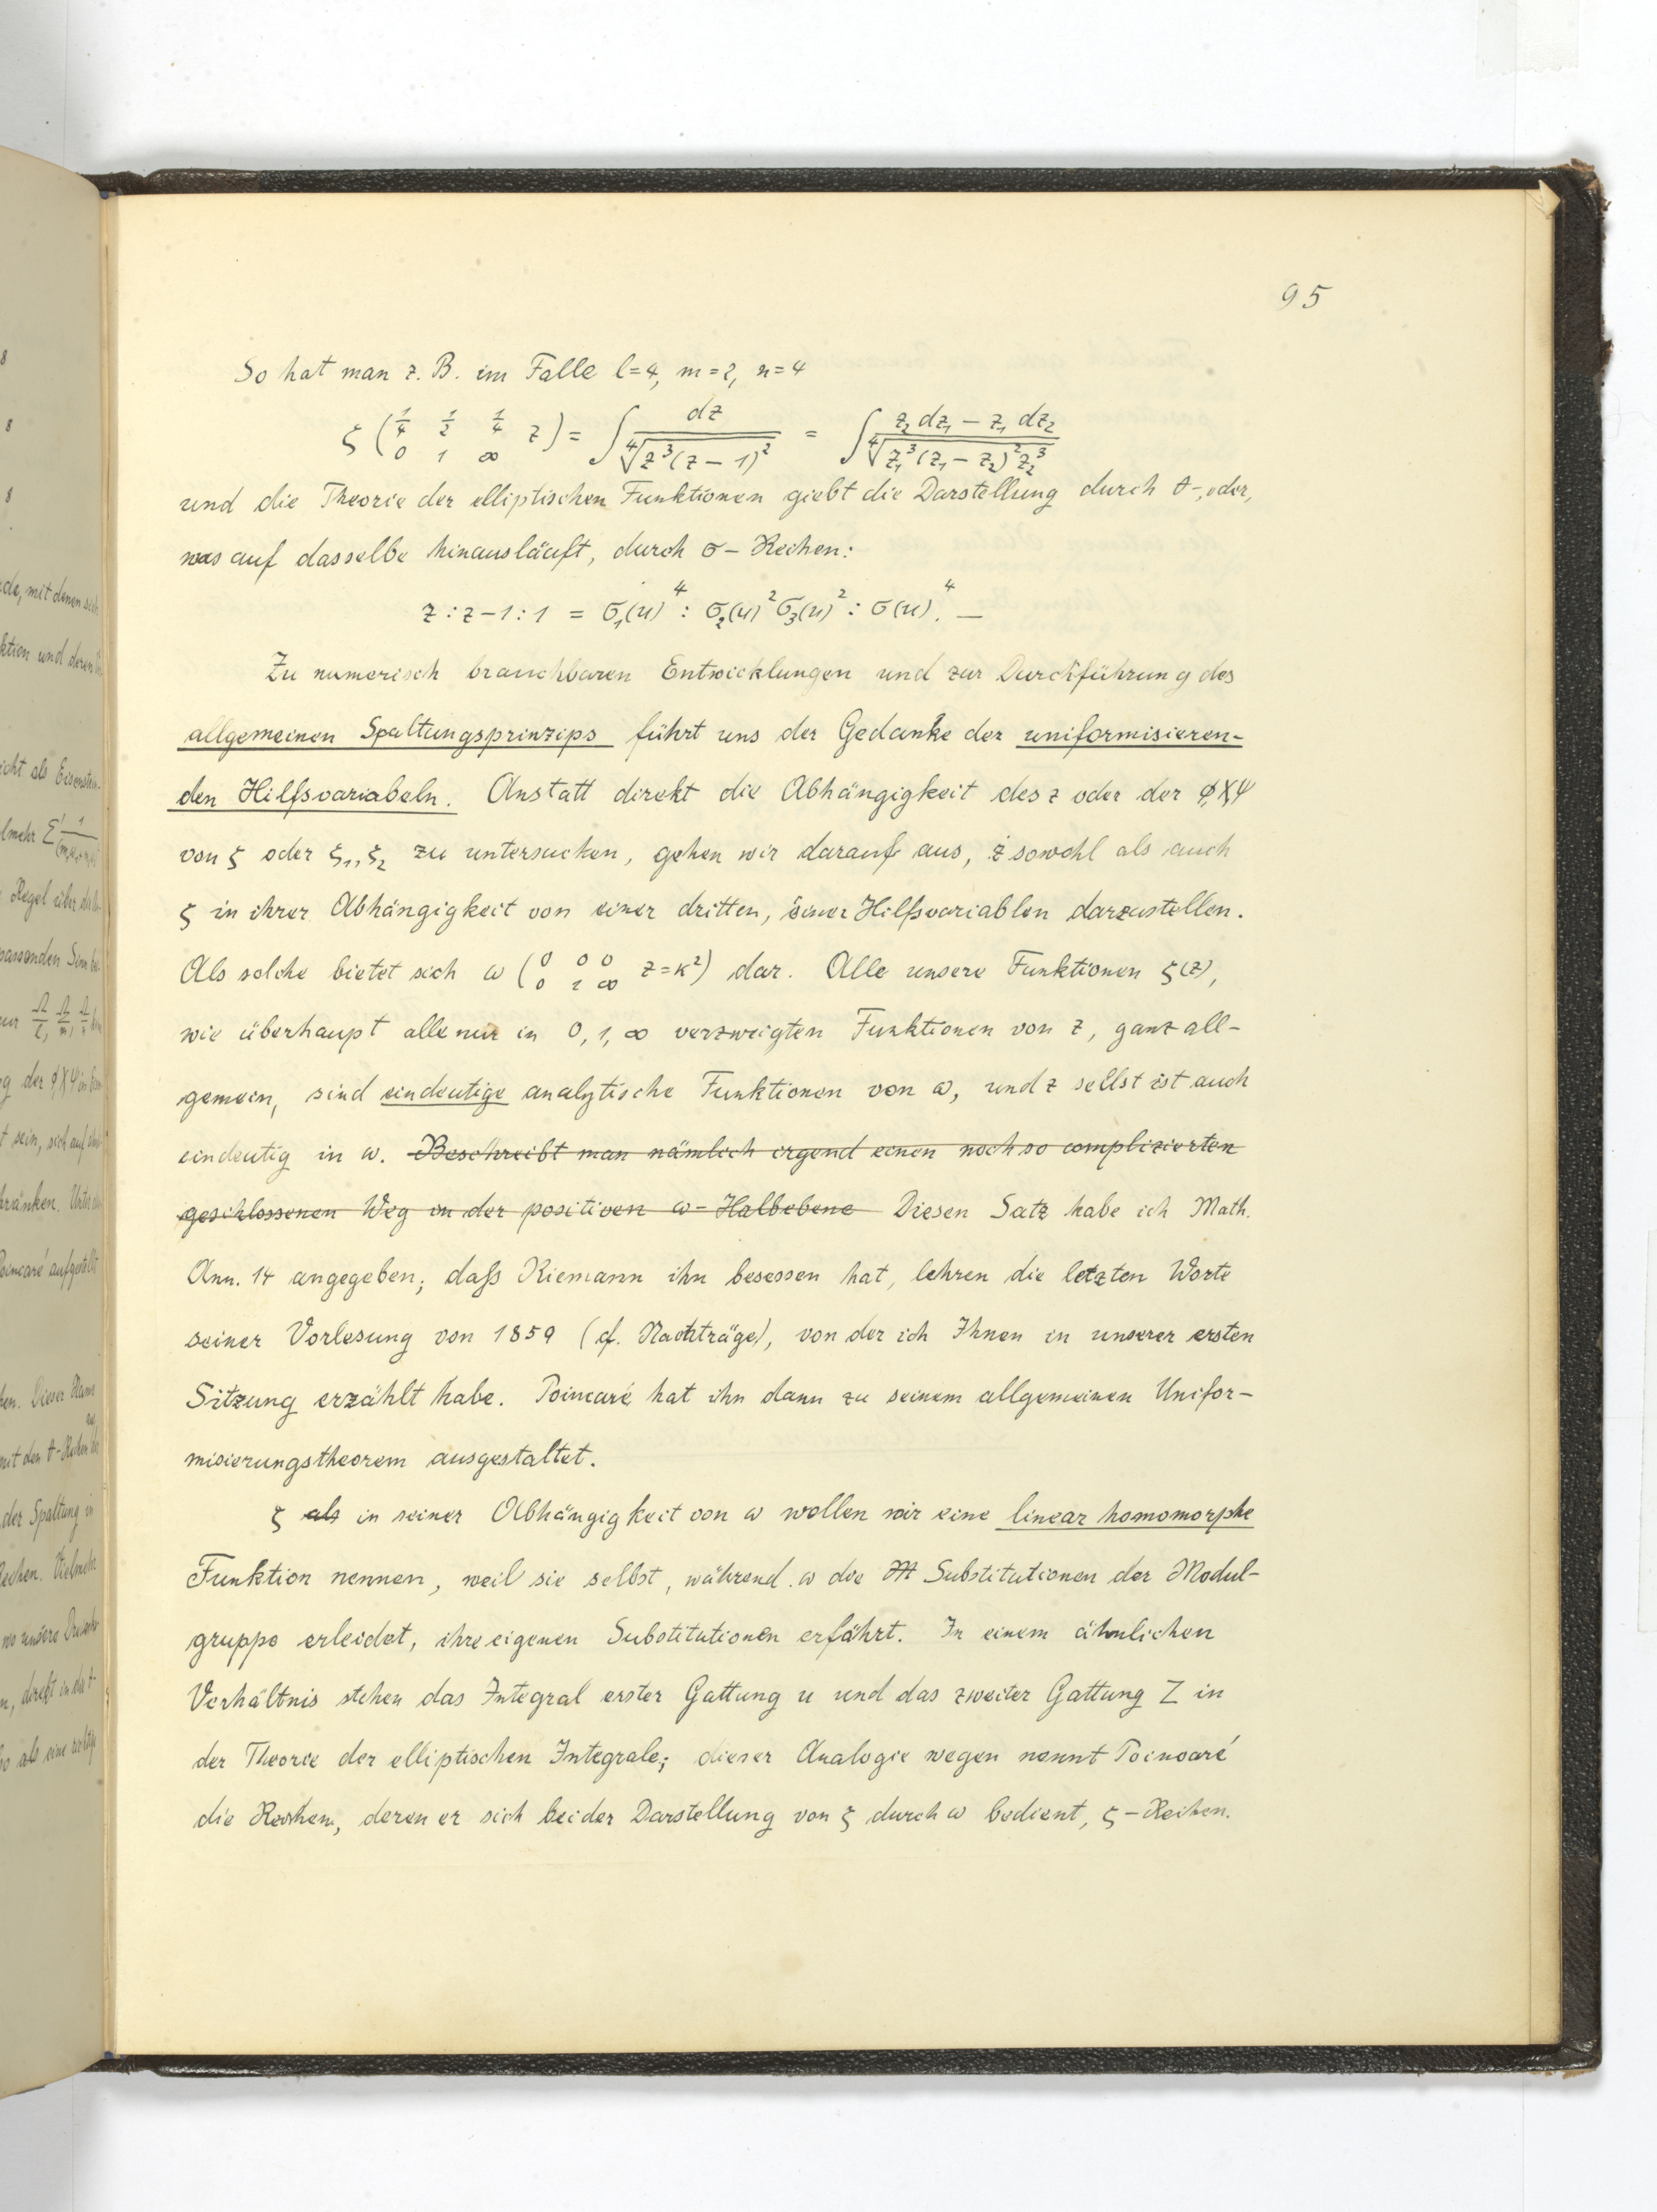 95
So hat man z. B. im Falle l=4, m=2, n=4
ζ (1/4 1/2 1/4 z / 0 1 ∞) = ∫ dz / ∜(z³(z-1)²) = ∫ (z₂dz₁ - z₁dz₂) / ∜(z₁³(z₁-z₂)²z₂³)
und die Theorie der elliptischen Funktionen giebt die Darstellung durch ϑ-, oder,
was auf dasselbe hinausläuft, durch σ-Reihen:
z : z-1 : 1 = σ₁(u)⁴ : σ₂(u)² σ₃(u)² : σ(u)⁴. —
Zu numerisch brauchbaren Entwicklungen und zur Durchführung des
allgemeinen Spaltungsprinzips führt uns der Gedanke der uniformisieren-
den Hilfsvariabeln. Anstatt direkt die Abhängigkeit des z oder der φ,χ,ψ
von ζ oder ζ₁, ζ₂ zu untersuchen, gehen wir darauf aus, z sowohl als auch
ζ in ihrer Abhängigkeit von einer dritten, einer Hilfsvariablen darzustellen.
Als solche bietet sich ω (0 0 0 / 0 1 ∞ z=κ²) dar. Alle unsere Funktionen ζ(z),
wie überhaupt alle nur in 0, 1, ∞ verzweigten Funktionen von z, ganz all-
gemein, sind eindeutige analytische Funktionen von ω, und z selbst ist auch
eindeutig in ω. Beschreibt man nämlich irgend einen noch so complizierten
geschlossenen Weg in der positiven ω-Halbebene Diesen Satz habe ich Math.
Ann. 14 angegeben; daß Riemann ihn besessen hat, lehren die letzten Worte
seiner Vorlesung von 1859 (cf. Nachträge), von der ich Ihnen in unserer ersten
Sitzung erzählt habe. Poincaré hat ihn dann zu seinem allgemeinen Unifor-
misierungstheorem ausgestaltet.
ζ als in seiner Abhängigkeit von ω wollen wir eine linear homomorphe
Funktion nennen, weil sie selbst, während ω die M Substitutionen der Modul-
gruppe erleidet, ihre eigenen Substitutionen erfährt. In einem ähnlichen
Verhältnis stehen das Integral erster Gattung u und das zweiter Gattung Z in
der Theorie der elliptischen Integrale; dieser Analogie wegen nennt Poincaré
die Reihen, deren er sich bei der Darstellung von ζ durch ω bedient, ζ-Reihen.